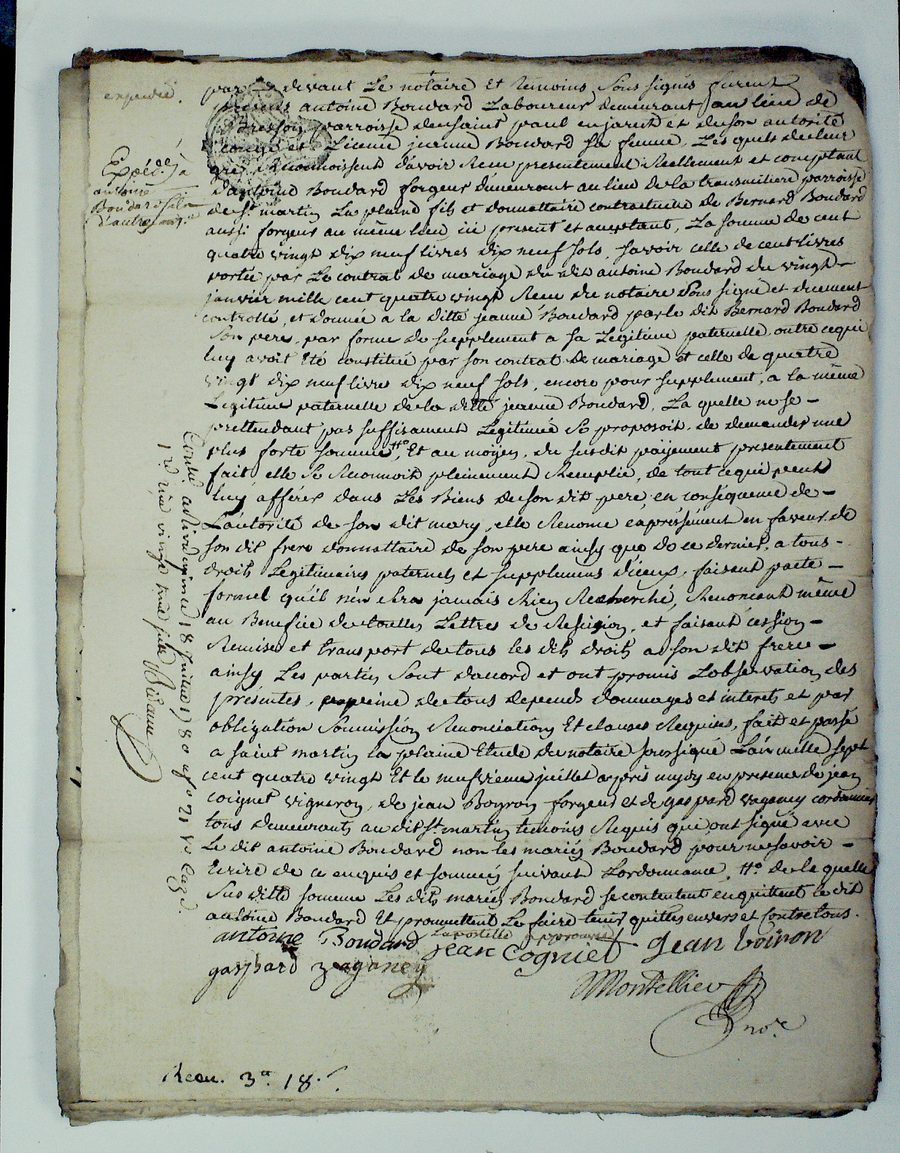 expedié.
Expédié à
antoine
Boudard fils
d'autre part
par devant Le notaire Et temoins Soussignés furent
presents antoine Boudard Laboureur demeurant au lieu de
Bresson parroisse de Saint paul en jarest et de son autorité
congé et Licence jeanne Boudard Sa femme, Les quels de leur
gré Reconnoissent d'avoir Reçu presentement Réellement et comptant
d'antoine Boudard forgeur demeurant au lieu de la transmiliere parroisse
de St. martin La plaine fils et donnattaire contractuelle de Bernard Boudard
aussi forgeur au même lieu, ici present et aceptant, La Somme de cent
quatre vingt dix neuf livres dix neuf sols, Savoir celle de cent livres
portée par Le contrat de mariage du dit antoine Boudard du vingt
janvier mille cent quatre vingt Recu du notaire Soussigné et duement
controllé, et donnée a la ditte jeanne Boudard par le dit Bernard Boudard
Son pere, par forme de Supplement a Sa Legitime paternelle, outre ce qui
luy avoit Eté constitué par son contrat de mariage et celle de quatre
vingt dix neuf livre dix neuf sols, encore pour Supplement, a la même
Legitime paternelle de la ditte jeanne Boudard, La quelle ne se
prettendant pas Suffisament Legitimée Se proposoit de demander une
plus forte Somme, Et au moyen du Susdit païement presentement
fait, elle Se Reconnoit pleinement Remplie, de tout ce qui peut
luy afférer dans Les Biens de son dit pere, en conséquence de
L'autorité de Son dit mary, elle Renonce éxpréssément en faveur de
son dit frere donnattaire de Son pere ainsy que de ce dernier, a tous
droits Legitimaires paternels et Supplemens d'iceux, faisant pacte
formel qu'il n'en sera jamais Rien Recherché, Renoncant même
au Benefice de toutes Lettres de Rescision, et faisant cession
Remise et transport de tous les dits droits a son dit frere
ainsy Les parties Sont d'acord et ont promis L'observation des
présentes, a peine de tous depends dommages et interets et par
obligation Soumission Renonciations Et clauses Requises, fait et passé
a Saint martin la plaine Etude du notaire soussigné L'an mille sept
cent quatre vingt Et le neufvieme juillet après mydy en presence de jean
coignet vigneron, de jean Boyron forgeur et de gaspard vaganey cordonnier
tous demeurants au dit St. martin temoins Requis qui ont signé avec
Le dit antoine Boudard non les mariés Boudard pour ne savoir
Ecrire de ce enquis et sommés suivant L'ordonnance. de la quelle
Sus ditte somme Les dits mariés Boudard se contentent en quittent le dit
antoine Boudard Et promettent Le faire tenir quitte envers et Contre tous.
Lapostille approuvée
antoine Boudard jean Cogniet jean boiron
gaspard vaganey
Montellier
nore
Recu. 3 18